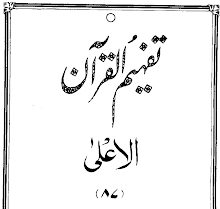 تفہیم القرآن
الاعلیٰ
(۸۷)